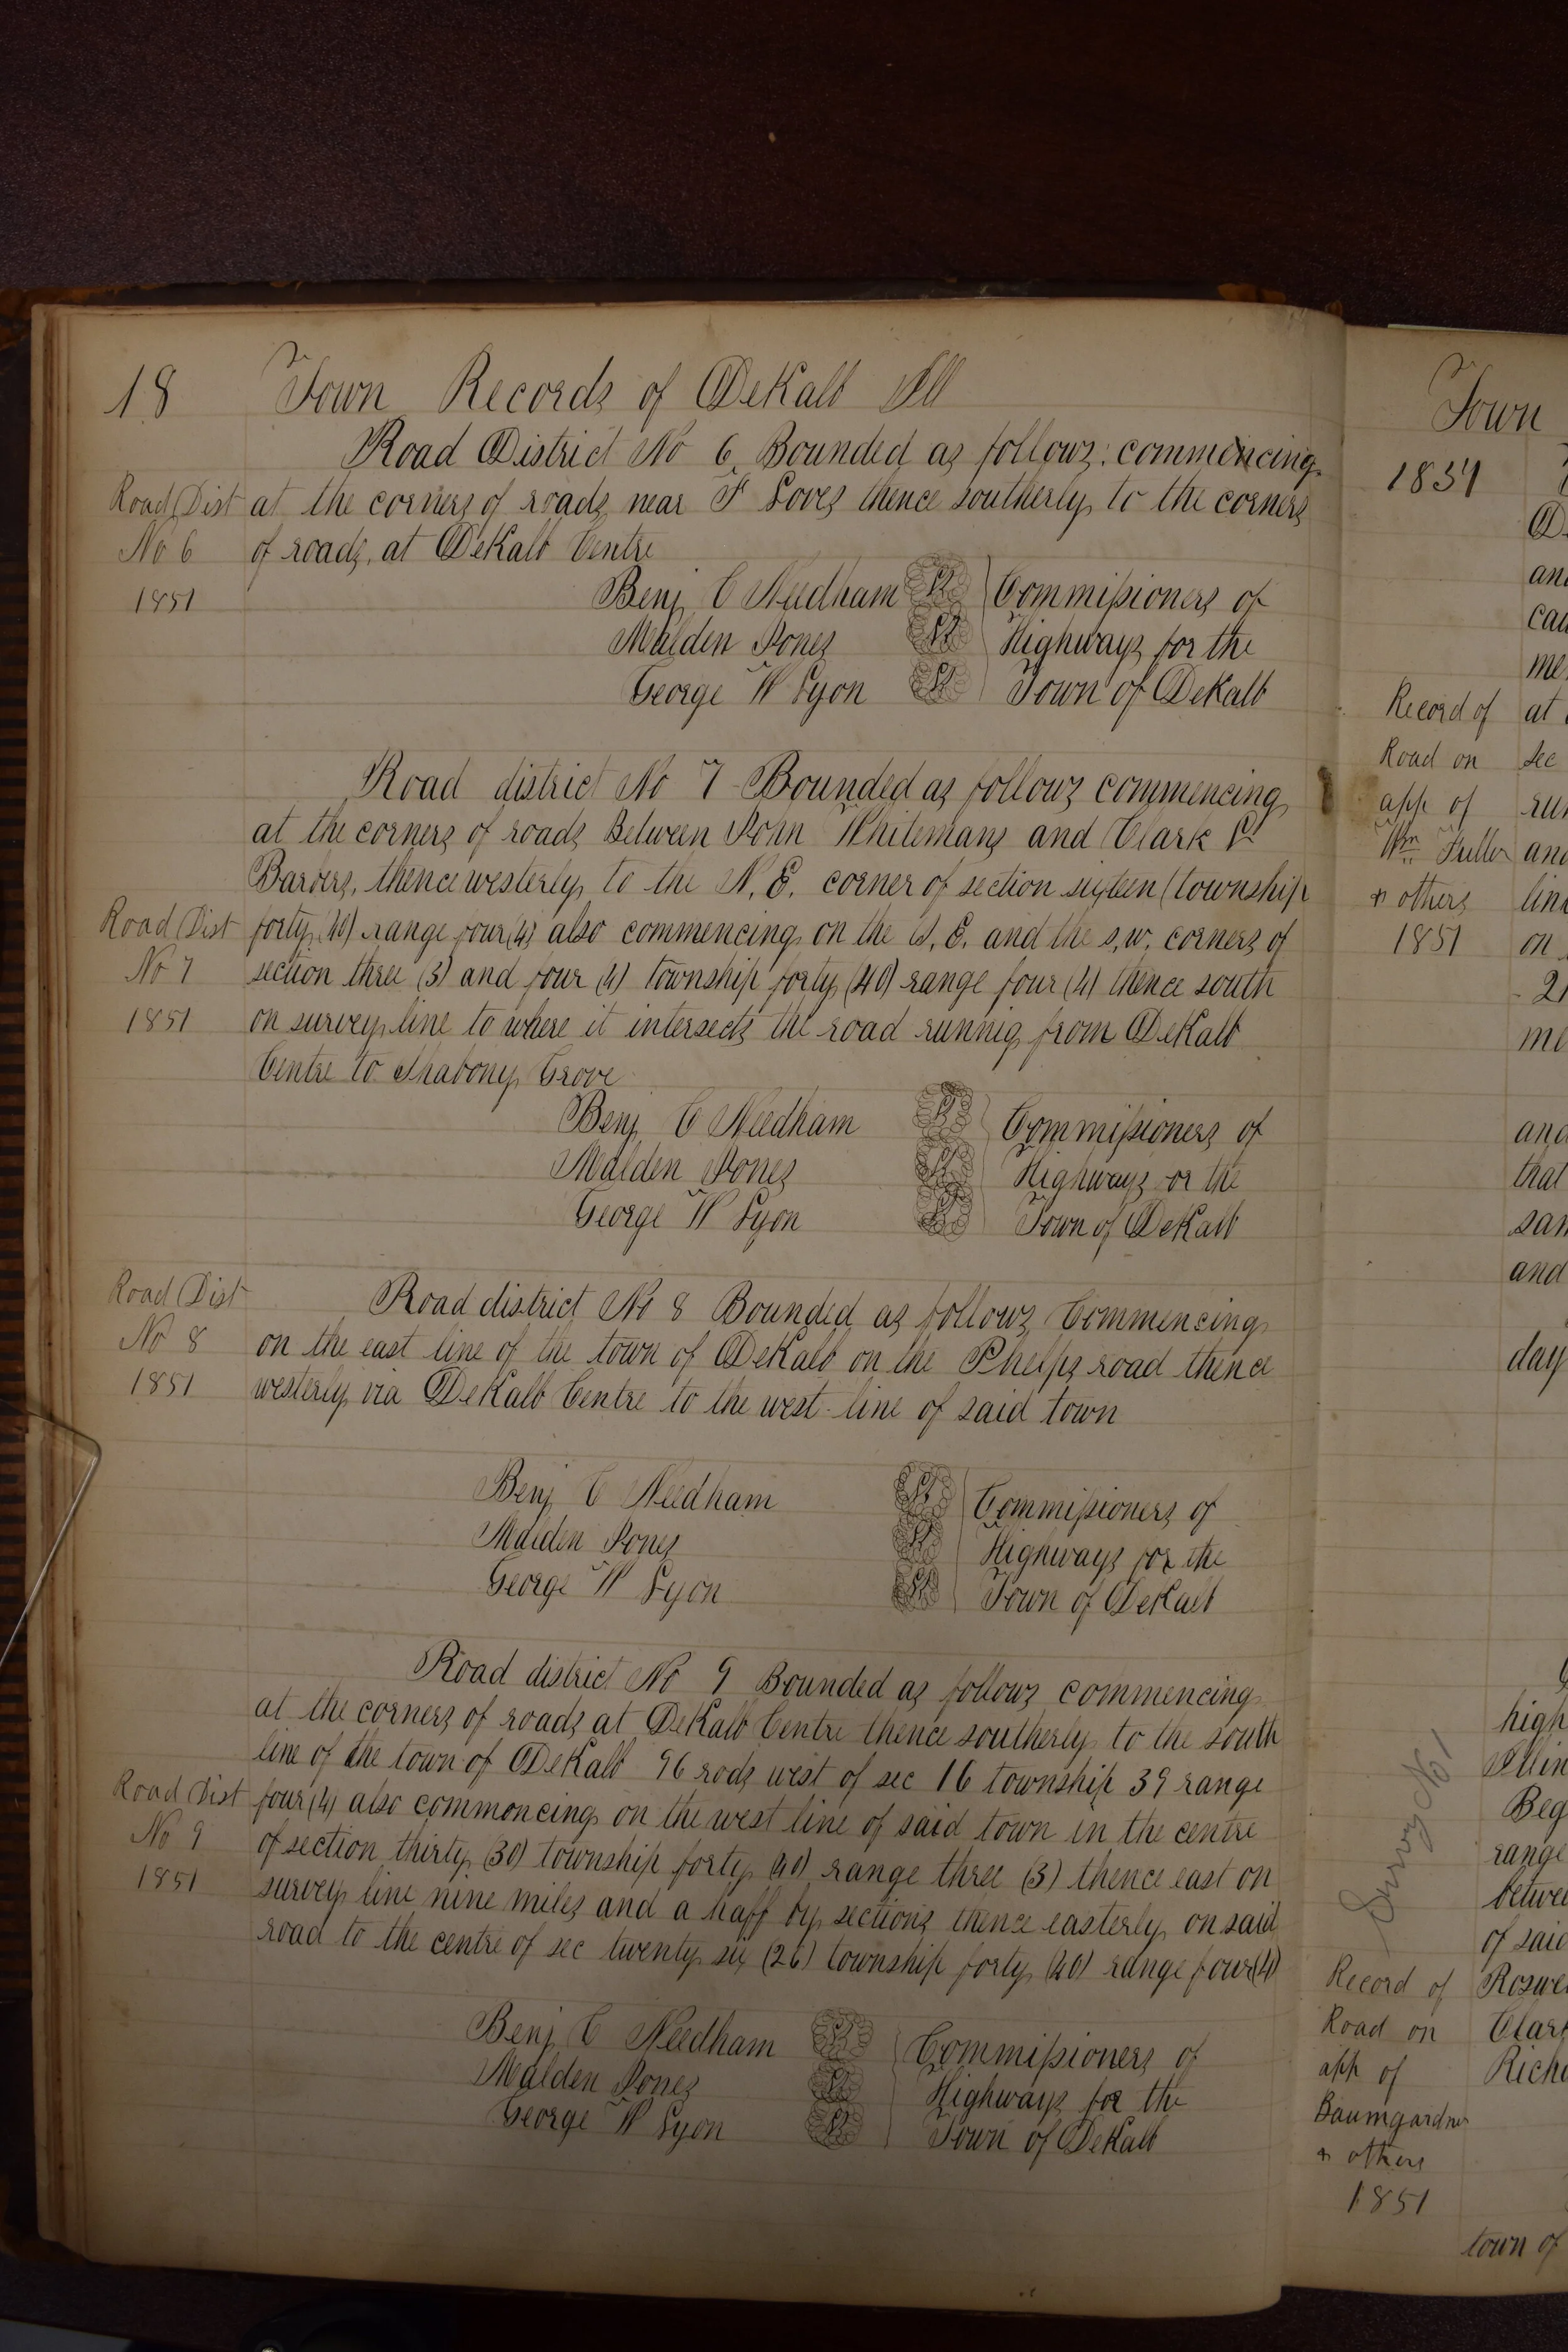 18 Town Records of DeKalb Ill
Road District No 6 Bounded as follows: commencing
Road Dist at the corners of roads near F Loves thence southerly to the corners
No 6 of roads, at DeKalb Centre
1851
Benj C Needham Commissioners of
Malden Jones Highways for the
George W Lyon Town of DeKalb
Road district No 7 Bounded as follows commencing
at the corners of roads Between John Whitemans and Clark
Barbers, thence westerly to the N. E. corner of section sixteen (township
Road Dist forty (40) range four (4) also commencing on the S. E. and the s, w, corners of
No 7 section three (3) and four (4) township forty (40) range four (4) thence south
1851 on survey line to where it intersects the road runnig from DeKalb
Centre to Shabony Grove
Benj C Needham Commissioners of
Malden Jones Highways or the
George W Lyon Town of DeKalb
Road Dist Road district No 8 Bounded as follows Commencing
No 8 on the east line of the town of DeKalb on the Phelps road thence
1851 westerly via DeKalb Centre to the west line of said town
Benj C Needham Commissioners of
Malden Jones Highways for the
George W Lyon Town of DeKalb
Road district No 9 Bounded as follows commencing
at the corners of roads at DeKalb Centre thence southerly to the south
line of the town of DeKalb 96 rods west of sec 16 township 39 range
Road Dist four (4) also commencing on the west line of said town in the centre
No 9 of section thirty (30) township forty (40) range three (3) thence east on
1851 survey line nine miles and a haff by sections thence easterly on said
road to the centre of sec twenty six (26) township forty (40) range four (4)
Benj C Needham Commissioners of
Malden Jones Highways for the
George W Lyon Town of DeKalb
Town
1837
an
me
Record of at
Road on sec
app of
Wm Fuller and
& others
1851 on
me
and
that
and
day
high
Beg
range
of said
Survey No 1
Record of
Road on
app of
Baumgardner
& others
1851
town of